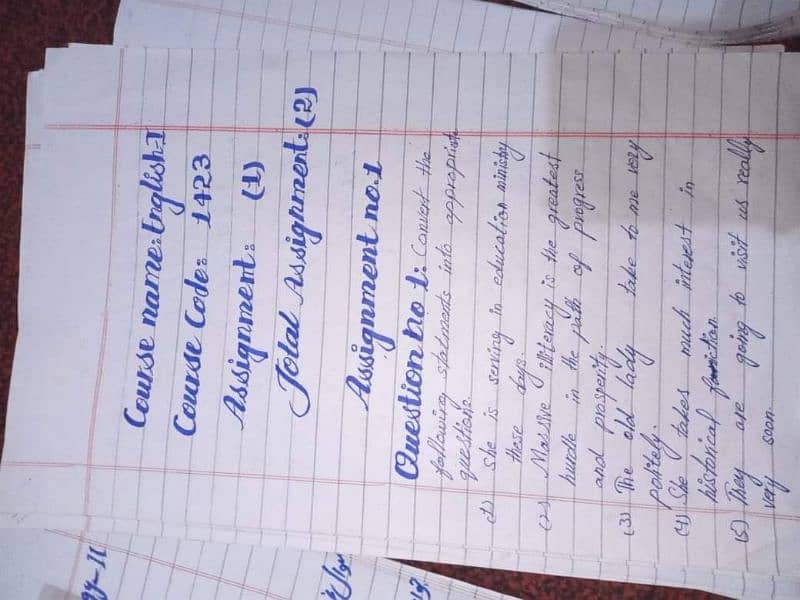 Course name: English-I
Course Code: 1423
Assignment: (1)
Total Assignment: (2)
Assignment no.1
Question no 1: Convert the
following statments into appropriate
questions.
(1) She is serving in education ministry
these days.
(2) Massive illiteracy is the greatest
hurdle in the path of progress
and prosperity.
(3) The old lady take to me very
politely.
(4) She takes much interest in
historical
(5) They are going to visit us really
very soon.